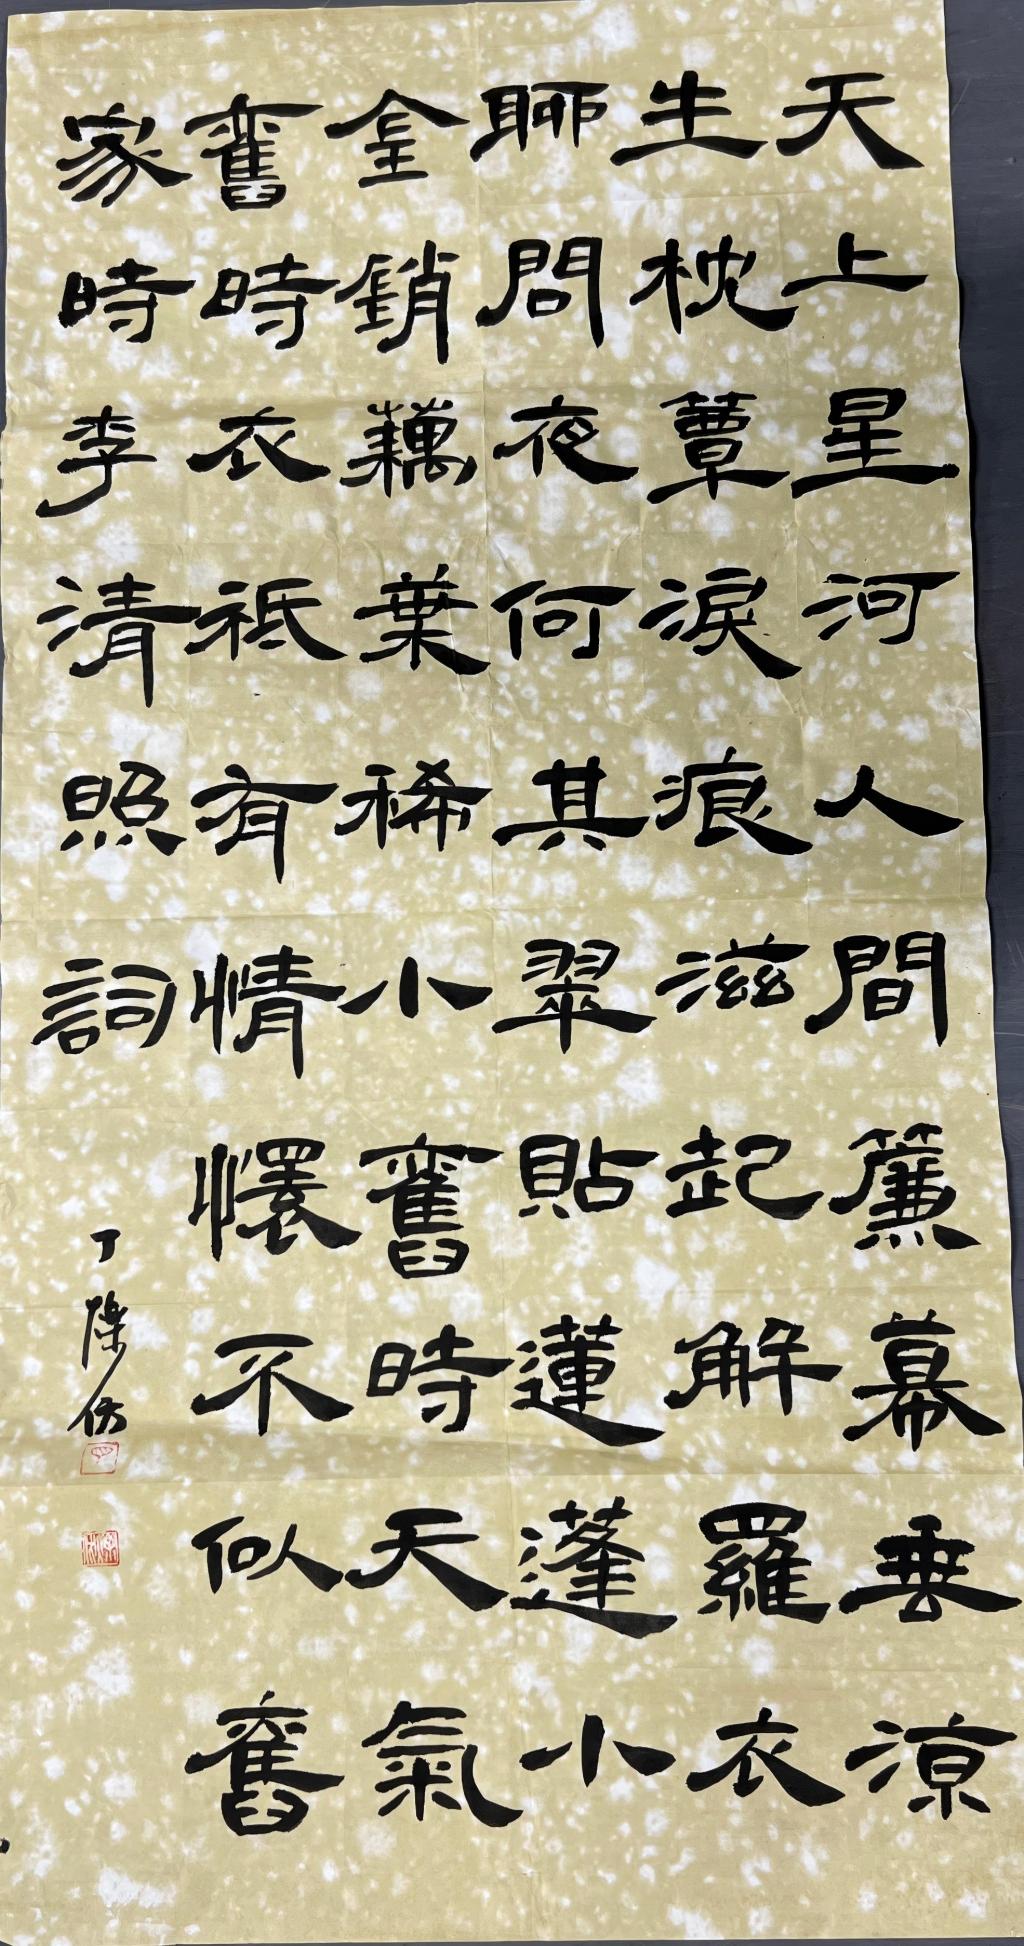 天上星河人間簾幕垂涼
生枕簟淚痕滋起解羅衣
聊問夜何其翠貼蓮蓬小
金銷藕葉稀小舊時天氣
舊時衣祇有情懷不似舊
家時李清照詞
丁